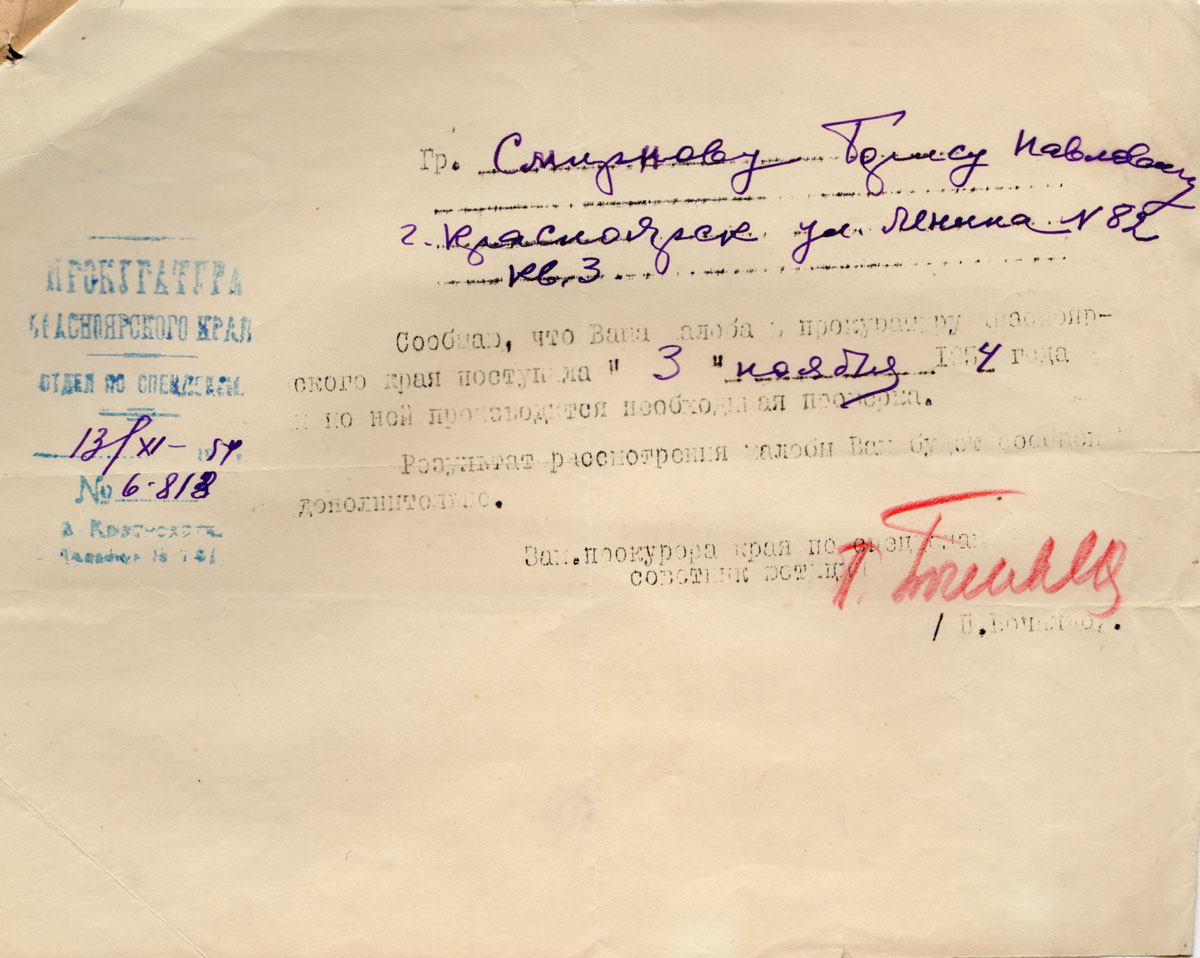 Гр. Смирнову Борису Павловичу
г. Красноярск ул. Ленина N 82
кв. 3.
ПРОКУРАТУРА
КРАСНОЯРСКОГО КРАЯ
ОТДЕЛ ПО СПЕЦДЕЛАМ
13/XI- 1954
№ 6-813
г. Красноярск
Телефон №
Сообщаю, что Ваша жалоба к прокурору Краснояр-
ского края поступила " 3 " ноября 1954 года
и по ней производится необходимая проверка.
Результат рассмотрения жалобы Вам будет сообщен
дополнительно.
Зам.прокурора края по спецделам
советник юстиции